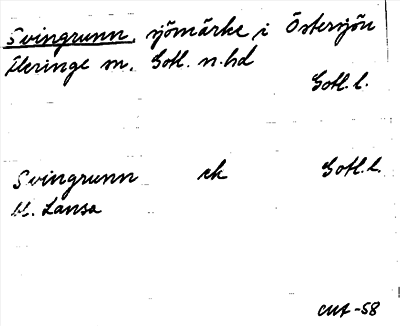 Svingrunn, sjömärke i Östersjön
Fleringe sn. Gotl. n. hd
Gotl. l.
Svingrunn ek Gotl. l.
M. Lansa
CMF -58